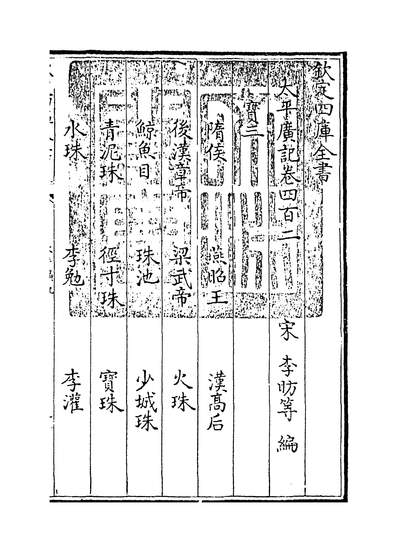 欽定四庫全書
太平廣記卷四百二
宋 李昉等 編
寶三
隋侯 燕昭王 漢高后
後漢章帝 梁武帝 火珠
鯨魚目 珠池 少城珠
青泥珠 徑寸珠 寶珠
水珠 李勉 李灌